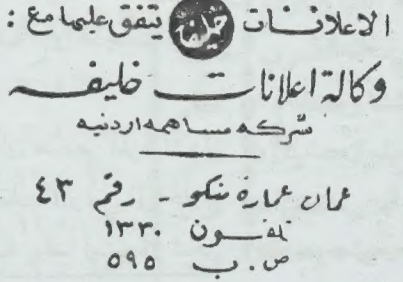 الاعلانات خليفه يتفق عليها مع :
وكالة اعلانات خليفه
شركه مساهمه اردنيه
عمان عمارة منكو - رقم ٤٣
تلفون ١٣٣٠
ص . ب ٥٩٥